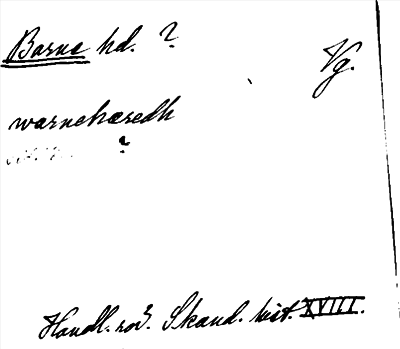 Barne hd. ?
Vg.
warnehæredh
?
Handl. rör. Skand. hist. XVIII.